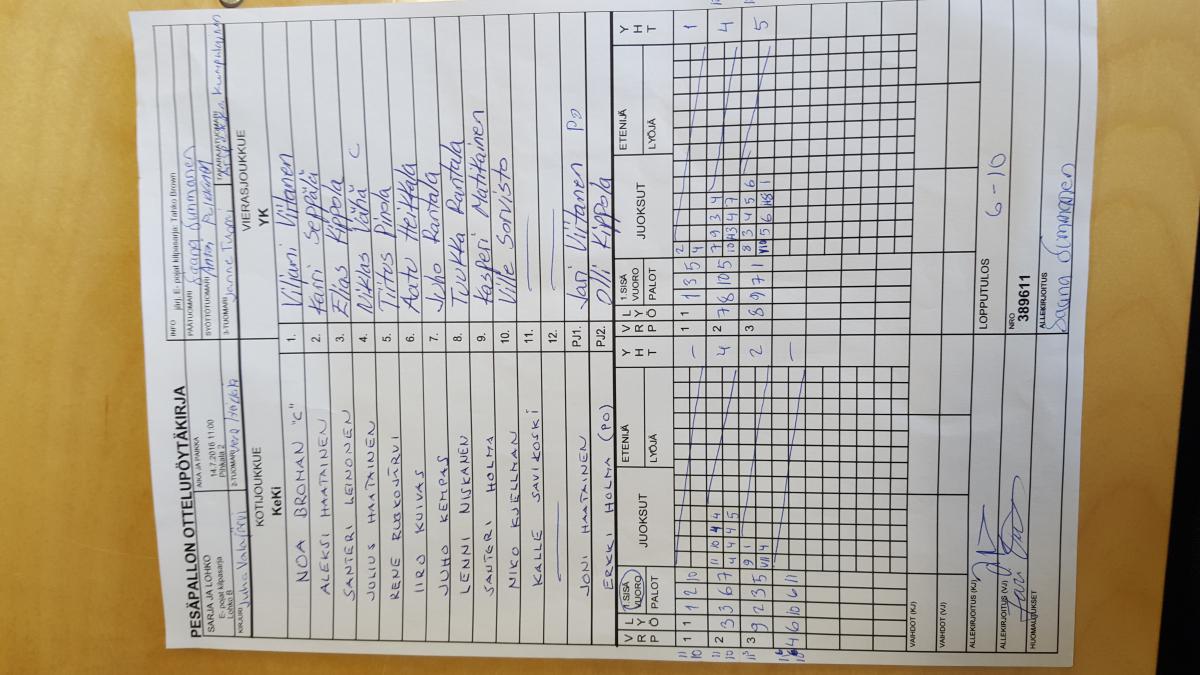 PESÄPALLON OTTELUPÖYTÄKIRJA
SARJA JA LOHKO
E- pojat kilpasarja
Lohko B
AIKA JA PAIKKA
14.7.2016 11:00
Pihkala 2
INFO järj. E- pojat kilpasarja: Tahko Brown
PÄÄTUOMARI
SYÖTTÖTUOMARI
KIRJURI Juha
2-TUOMARI
3-TUOMARI Janne Tuomi
KOTIJOUKKUE
KeKi
VIERASJOUKKUE
YK
NOA BROMAN "C" 1. Viljami Viitanen
ALEKSI HAATAINEN 2. Harri Seppälä
SANTERI LEINONEN 3. Elias Kippola
JULIUS HAATAINEN 4. Niklas Vähä C
RENE RUISKOJÄRVI 5.
IIRO KUIVAS 6. Aatu Heikkala
JUHO KEMPAS 7. Juho Rantala
LENNI NISKANEN 8. Tuukka Rantala
SANTERI HOLMA 9. Kasperi Matikainen
NIKO KJELLMAN 10. Ville Sorvisto
KALLE SAVIKOSKI 11.
12.
JONI HAATAINEN PJ1. Jari Viitanen PD
ERKKI HOLMA (PO) PJ2. Olli Kippola
V L R Y P Ö 1.SISÄ VUORO PALOT JUOKSUT ETENIJÄ LYÖJÄ Y H T V L R Y P Ö 1.SISÄ VUORO PALOT JUOKSUT ETENIJÄ LYÖJÄ Y H T
1 1 1 2 10 – 1 1 1 3 5 2 4 1
2 3 3 6 7 11 10 4 4 4 4 4 5 4 2 7 8 10 5 7 9 3 4 10 3 4 7 4
3 9 2 3 5 9 1 VII 4 2 3 8 9 7 1 8 3 4 5 6 5
4 6 10 6 11 –
VAIHDOT (KJ)
VAIHDOT (VJ)
ALLEKIRJOITUS (KJ)
ALLEKIRJOITUS (VJ)
HUOMAUTUKSET
LOPPUTULOS 6-10
NRO
389611
ALLEKIRJOITUS